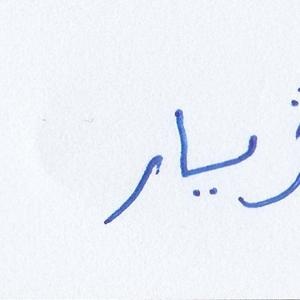 يار